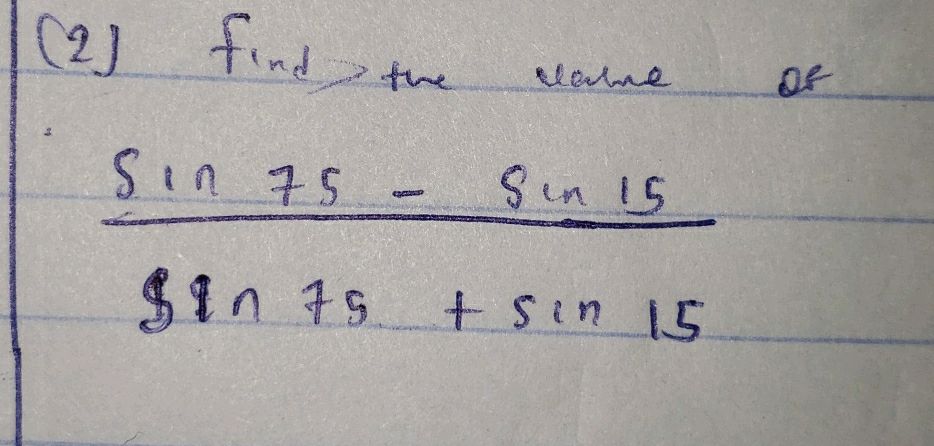 (2) Find the value of
Sin 75 - Sin 15
Sin 75 + sin 15